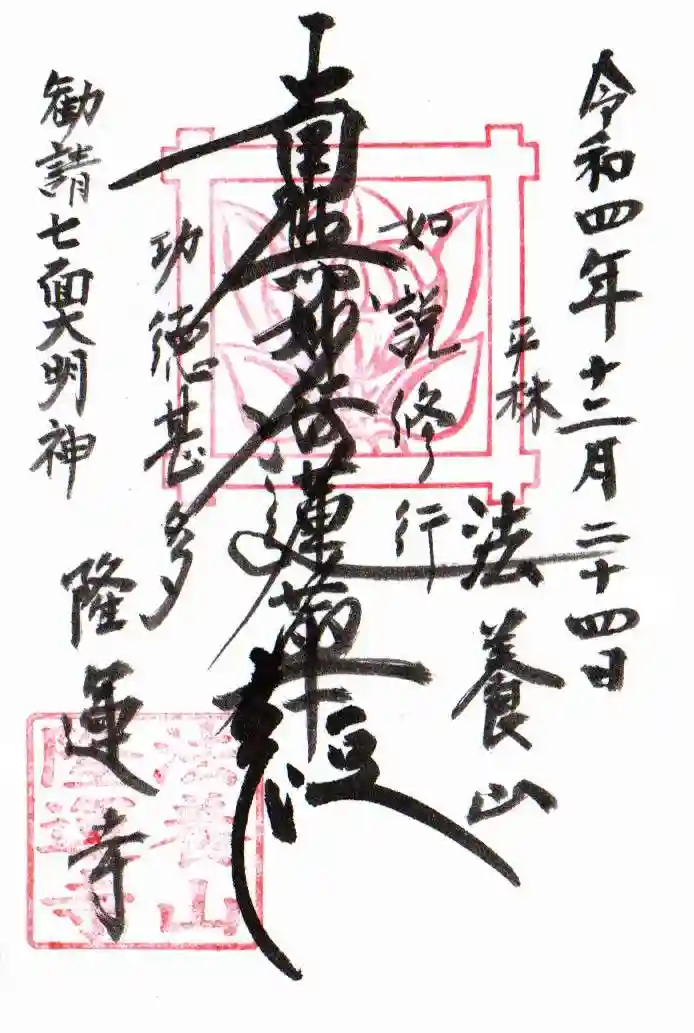 令和四年十二月二十四日
平林
法養山
如説修行
南無妙法蓮華経
功徳甚多
隆運寺
勧請七面大明神
法養山
隆運寺